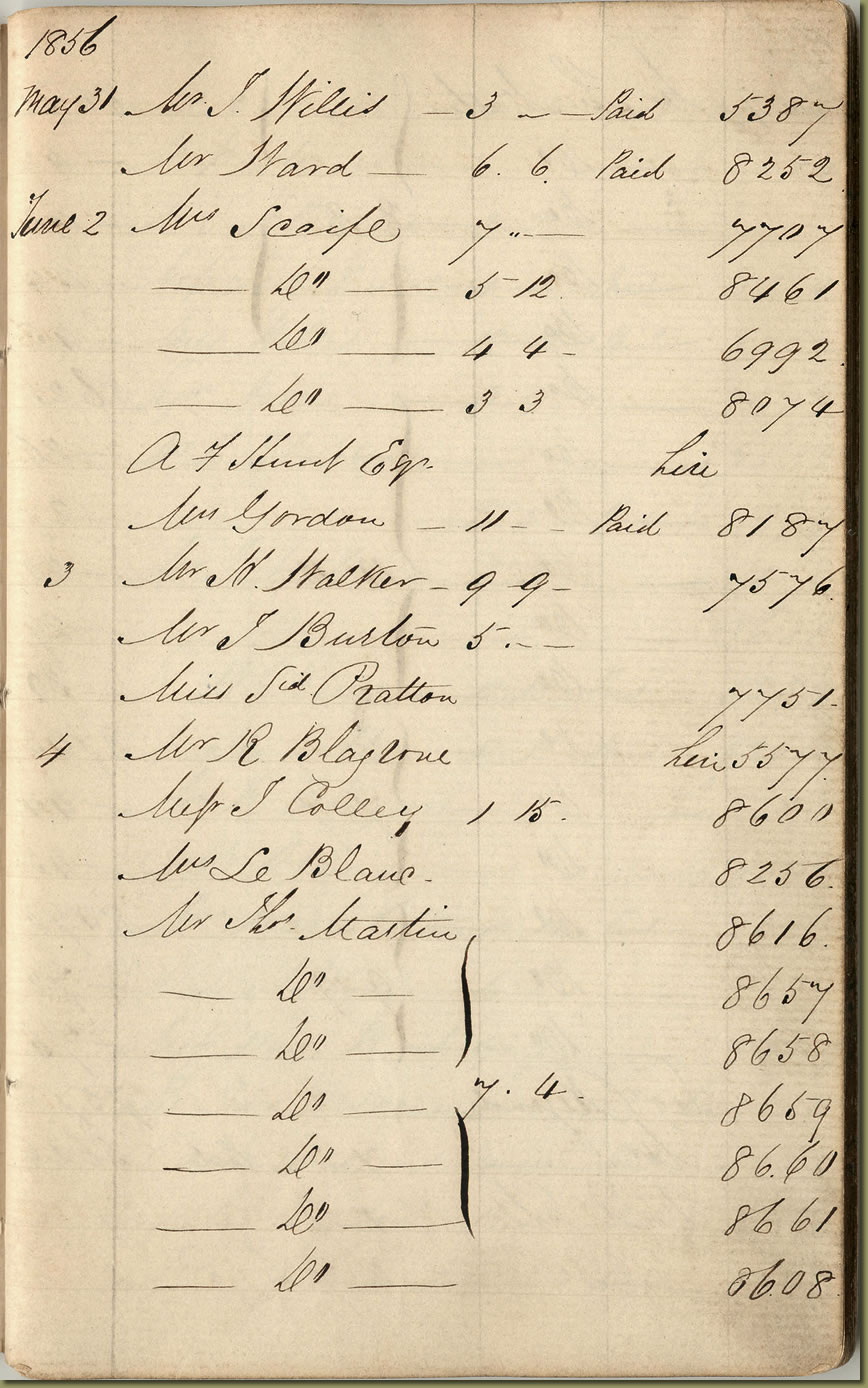 1856
May 31 Mr. J. Willis — 3 - — Paid 5387
Mr Ward — 6. 6. Paid 8252
June 2 Mrs Scaife 7 " — 7707
— Do — 5 12. 8461
— Do — 4 4 - 6992.
— Do — 3 3 8074
A F Hunt Esqr. hire
Mrs Gordon — 11 - - Paid 8187
3 Mr H. Walker - 9 9 - 7576.
Mr J Burton 5. — —
Miss Sid Pratton 7751.
4 Mr R Blagrove hire 5577.
Messr J Colley 1 15. 8600
Mrs Le Blanc. 8256.
Mr Thos. Martin 8616.
— Do — 8657
— Do — 8658
— Do — 7. 4. 8659
— Do — 86.60
— Do — 8661
— Do — 8608